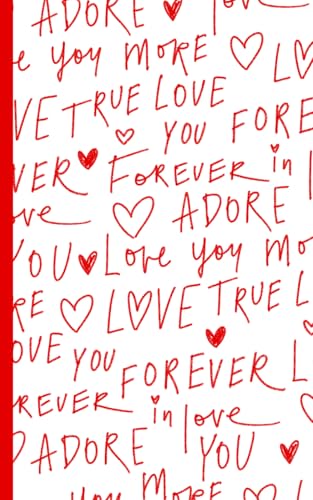 ADORE love
e you more LO
VE TRUE LOVE
YOU FORE
VER FOREVER in l
ve ADORE
YOU Love you mo
RE LOVE TRUE L
OVE YOU FOREVER L
REVER in love
ADORE YOU
you more L